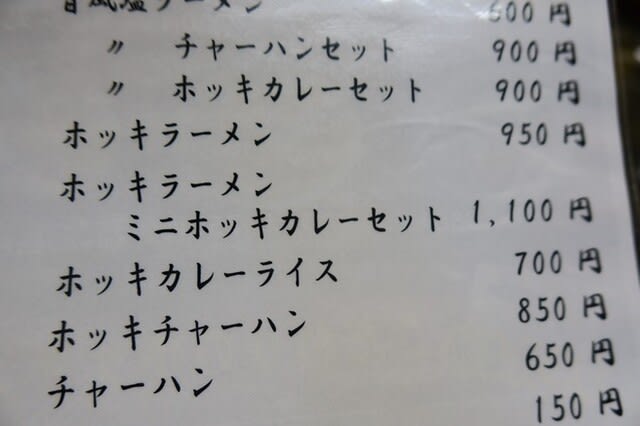 昔風塩ラーメン 600円
〃 チャーハンセット 900円
〃 ホッキカレーセット 900円
ホッキラーメン 950円
ホッキラーメン
ミニホッキカレーセット 1,100円
ホッキカレーライス 700円
ホッキチャーハン 850円
チャーハン 650円
150円